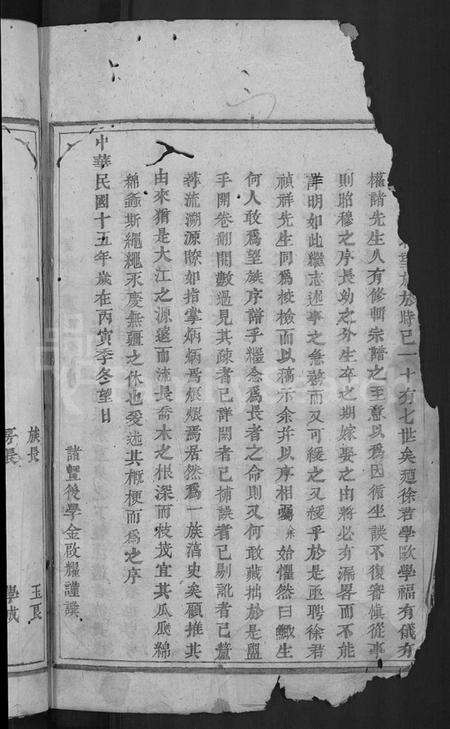 族於時已一十有七世矣適徐君學歐學福有儀有
權諸先生人有修輯宗譜之主意以為因循坐誤不復審慎從事
則昭穆之序長幼之分生卒之期嫁娶之由將必有漏畧而不能
詳明如此繼志述事之急務而又可緩之又緩乎於是亟聘徐君
禎祥先生同為校檢而以稿示余并以序相囑余始懼然曰鯫生
何人敢為望族序譜乎繼念為長者之命則又何敢藏拙於是盥
手開卷繙閱數過見其疎者已詳闕者已補誤者已剔訛者已釐
尋流溯源瞭如指掌炳炳焉煅煅焉居然為一族舊史矣顧推其
由來猶是大江之源遠而流長喬木之根深而枝茂宜其瓜瓞綿
綿螽斯繩繩永慶無疆之休也爰述其概梗而為之序
中華民國十五年歲在丙寅季冬望日
諸暨後學金啟糧謹譔
族長 玉良
房長 學成